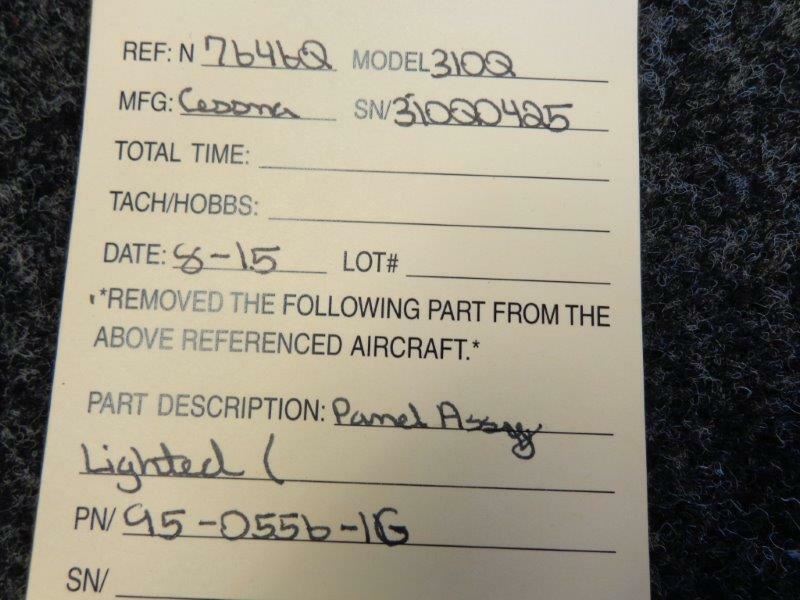 REF: N 7646Q MODEL 310Q
MFG: Cessna SN/ 310Q0425
TOTAL TIME:
TACH/HOBBS:
DATE: 8-15 LOT#
*REMOVED THE FOLLOWING PART FROM THE
ABOVE REFERENCED AIRCRAFT.*
PART DESCRIPTION: Panel Assy
Lighted (
PN/ 95-0556-1G
SN/